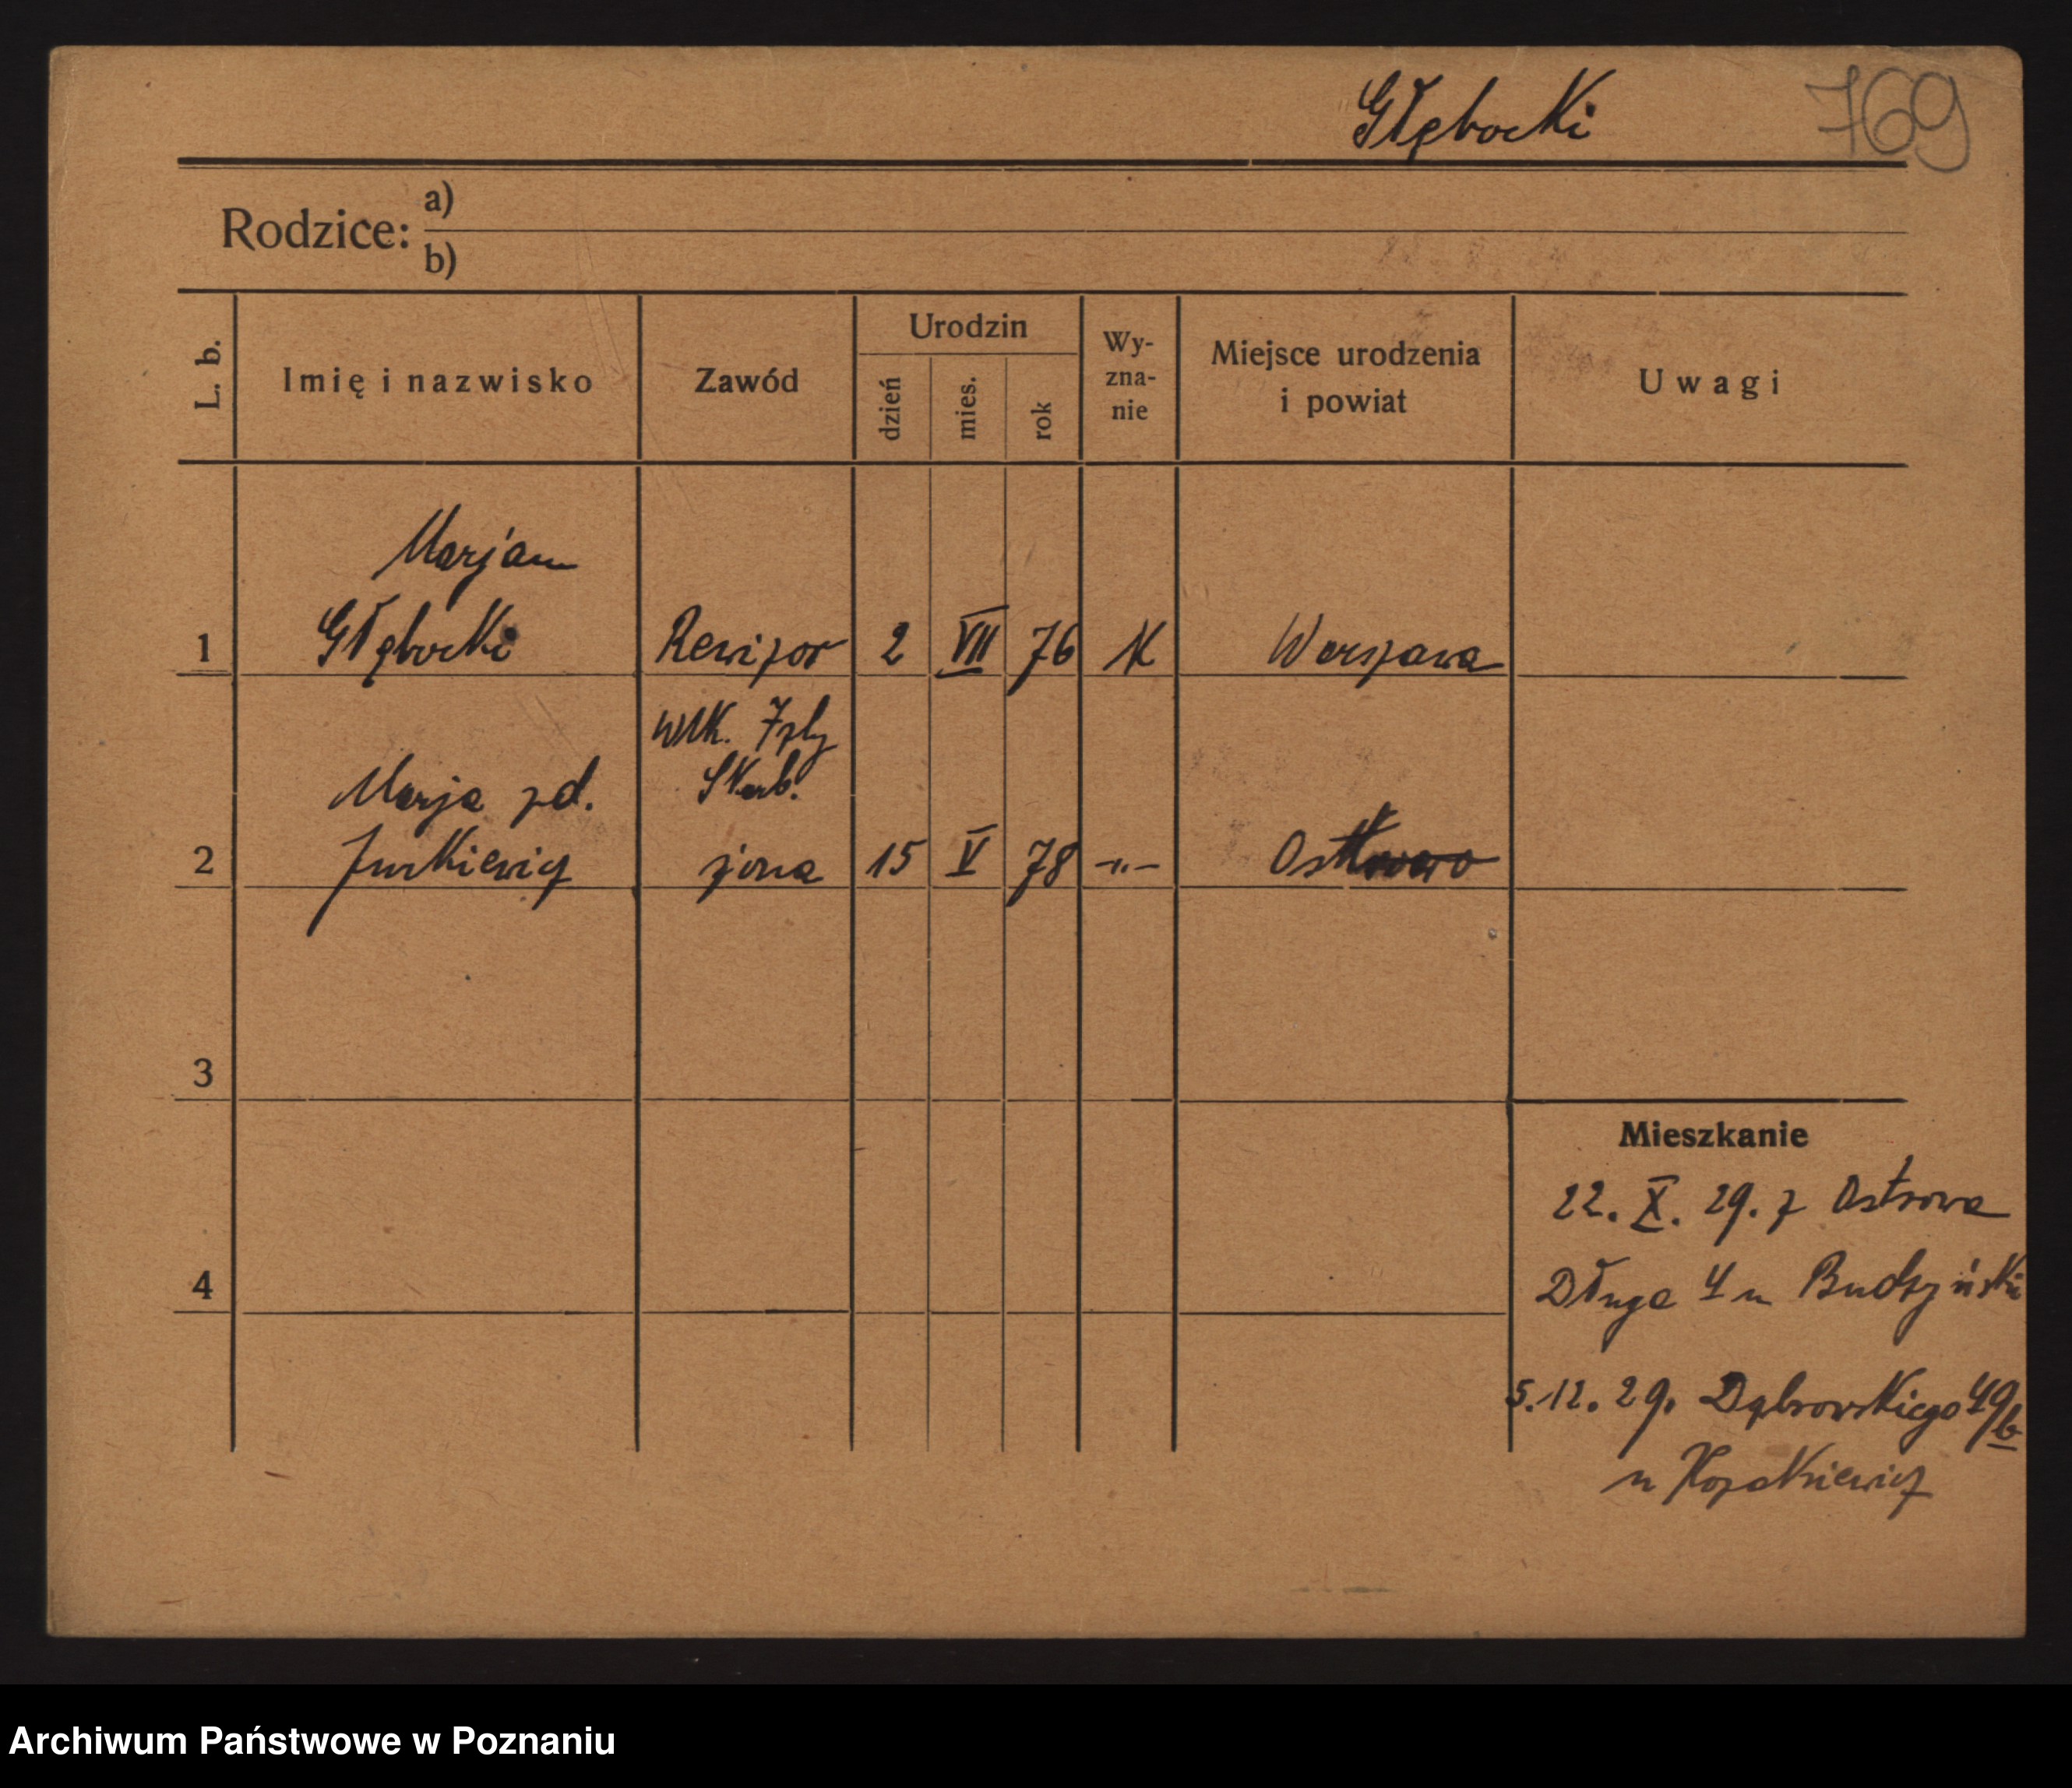 Głębocki 769
Rodzice: a)
b)
L. b. Imię i nazwisko Zawód Urodzin dzień mies. rok Wy-zna-nie Miejsce urodzenia i powiat Uwagi
Marjan
1 Głębocki Rewizor 2 VII 76 K Warszawa
Wlk. Izby
Skarb.
Marja zd.
2 Jurkiewicz żona 15 V 78 -"-
3
Mieszkanie
22. X. 29. z Ostrowa
4 Długa 4 u Budzyński
5.12.29. Dąbrowskiego 49/b
u Kozakiewicz
Archiwum Państwowe w Poznaniu